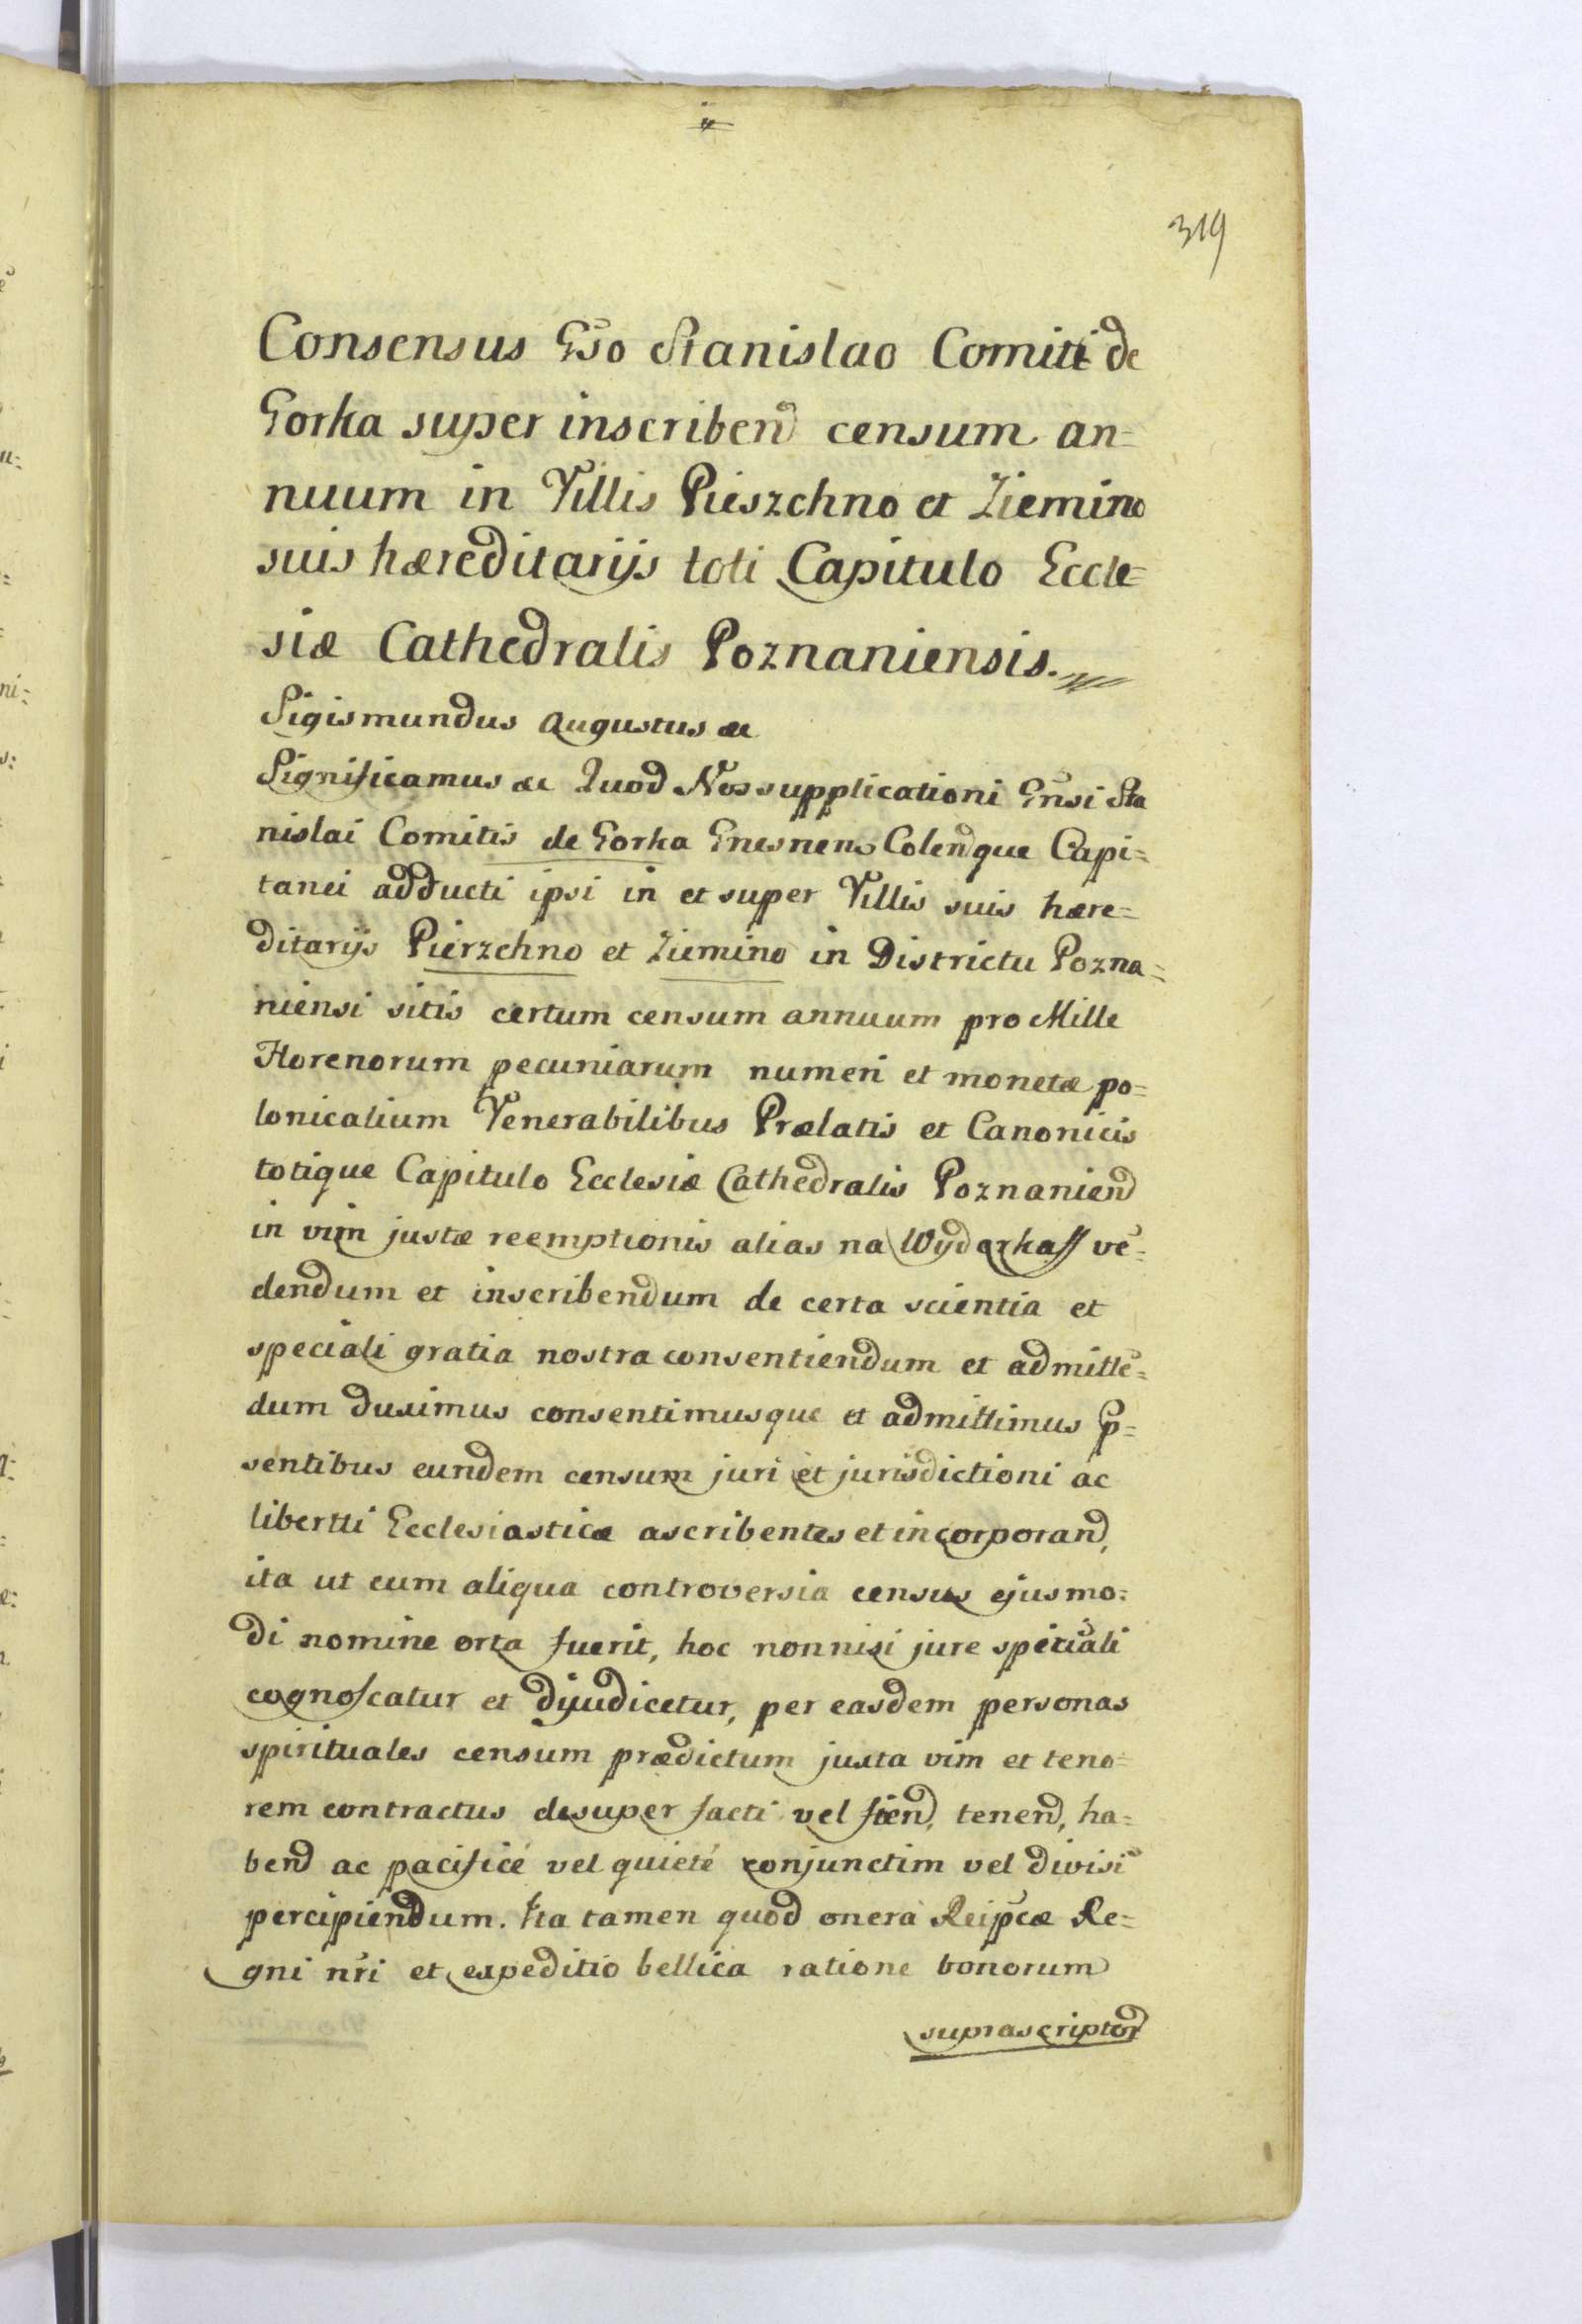 319
Consensus Gso Stanislao Comiti de
Gorka super inscriben censum an=
nuum in Villis Pieszchno et Ziemino
suis hæreditarijs toti Capitulo Eccle=
siæ Cathedralis Poznaniensis.
Sigismundus Augustus &c
Significamus &c Quod Nos supplicationi Gnsi Sta
nislai Comitis de Gorka Gnesnens Colenque Capi=
tanei adducti ipsi in et super Villis suis hære=
ditarijs Pierzchno et Ziemino in Districtu Pozna=
niensi sitis certum censum annuum pro Mille
Florenorum pecuniarum numeri et monetæ po=
lonicalium Venerabilibus Prælatis et Canonicis
totique Capitulo Ecclesiæ Cathedralis Poznanien
in vim justæ reemptionis alias na Wyderkaff vē=
dendum et inscribendum de certa scientia et
speciali gratia nostra consentiendum et admittē=
dum duximus consentimusque et admittimus p=
sentibus eundem censum juri et jurisdictioni ac
libertti Ecclesiasticæ ascribentes et incorporand,
ita ut cum aliqua controversia census ejusmo=
di nomine orta fuerit, hoc nonnisi jure spirũali
cognoscatur et dijudicetur, per easdem personas
spirituales censum prædictum juxta vim et teno=
rem contractus desuper facti vel fien, tenen, ha=
ben ac pacificé vel quieté conjunctim vel divisī
percipiendum. Ita tamen quod onera Reip̃cæ Re=
gni nr̃i et expeditio bellica ratione bonorum
suprascriptor